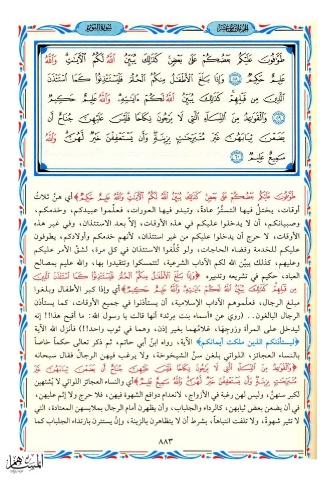 طَوَّٰفُونَ عَلَيْكُم بَعْضُكُمْ عَلَىٰ بَعْضٍ كَذَٰلِكَ يُبَيِّنُ ٱللَّهُ لَكُمُ ٱلْءَايَٰتِ وَٱللَّهُ
عَلِيمٌ حَكِيمٌ ﴿٥٨﴾ وَإِذَا بَلَغَ ٱلْأَطْفَٰلُ مِنكُمُ ٱلْحُلُمَ فَلْيَسْتَـْٔذِنُوا۟ كَمَا ٱسْتَـْٔذَنَ
ٱلَّذِينَ مِن قَبْلِهِمْ كَذَٰلِكَ يُبَيِّنُ ٱللَّهُ لَكُمْ ءَايَٰتِهِۦ وَٱللَّهُ عَلِيمٌ حَكِيمٌ
﴿٥٩﴾ وَٱلْقَوَٰعِدُ مِنَ ٱلنِّسَآءِ ٱلَّٰتِى لَا يَرْجُونَ نِكَاحًا فَلَيْسَ عَلَيْهِنَّ جُنَاحٌ أَن
يَضَعْنَ ثِيَابَهُنَّ غَيْرَ مُتَبَرِّجَٰتٍۭ بِزِينَةٍ وَأَن يَسْتَعْفِفْنَ خَيْرٌ لَّهُنَّ وَٱللَّهُ
سَمِيعٌ عَلِيمٌ ﴿٦٠﴾
﴿طَوَّٰفُونَ عَلَيْكُم بَعْضُكُمْ عَلَىٰ بَعْضٍ كَذَٰلِكَ يُبَيِّنُ ٱللَّهُ لَكُمُ ٱلْءَايَٰتِ وَٱللَّهُ عَلِيمٌ حَكِيمٌ﴾ أي هنَّ ثلاثُ
أوقات، يختلُّ فيها التستُّرُ عادةً، وتبدو فيها العورات، فعلِّموا عبيدكم، وخدمكم،
وصبيانكم، أن لا يدخلوا عليكم في هذه الأوقات، إلاَّ بعد الاستئذان، وفي غير هذه
الأوقات، لا حرج أن يدخلوا عليكم من غير استئذان، لأنهم خدمكم وأولادكم، يطوفون
عليكم للخدمة وقضاء الحاجات، ولو كُلِّفوا الاستئذان في كل مرة، لشقَّ الأمر عليكم
وعليهم، كذلك يبيِّن الله لكم الآداب الشرعية، لتتمسكوا وتتقيدوا بها، والله عليم بمصالح
العباد، حكيم في تشريعه وتدبيره ﴿وَإِذَا بَلَغَ ٱلْأَطْفَٰلُ مِنكُمُ ٱلْحُلُمَ فَلْيَسْتَـْٔذِنُوا۟ كَمَا ٱسْتَـْٔذَنَ ٱلَّذِينَ
مِن قَبْلِهِمْ كَذَٰلِكَ يُبَيِّنُ ٱللَّهُ لَكُمْ ءَايَٰتِهِۦ وَٱللَّهُ عَلِيمٌ حَكِيمٌ﴾ أي وإذا كبر الأطفال وبلغوا
مبلغ الرجال، فعلموهم الآداب الإسلامية، أن يستأذنوا في جميع الأوقات، كما يستأذن
الرجال البالغون.. (روي عن «أسماء بنت مرثد» أنها قالت يا رسول الله: ما أقبح هذا!! إنه
ليدخل على المرأة وزوجها، غلامُهما بغير إذن، وهما في ثوب واحد!!) فأنزل الله الآية
﴿ليستأذنكم الذين ملكت أيمانكم﴾ الآية، رواه ابن أبي حاتم، ثم ذكر تعالى حكماً خاصاً
بالنساء العجائز، اللواتي بلغن سنَّ الشيخوخة، ولا يرغب فيهن الرجالُ فقال سبحانه
﴿وَٱلْقَوَٰعِدُ مِنَ ٱلنِّسَآءِ ٱلَّٰتِى لَا يَرْجُونَ نِكَاحًا فَلَيْسَ عَلَيْهِنَّ جُنَاحٌ أَن يَضَعْنَ ثِيَابَهُنَّ غَيْرَ
مُتَبَرِّجَٰتٍۭ بِزِينَةٍ وَأَن يَسْتَعْفِفْنَ خَيْرٌ لَّهُنَّ وَٱللَّهُ سَمِيعٌ عَلِيمٌ﴾ أي والنساء العجائز اللواتي لا يُشتهين
لكبر سنهنَّ، وليس لهن رغبة في الأزواج، لانعدام دوافع الشهوة فيهن، فلا حرج ولا إثم عليهن،
في أن يضعن بعض ثيابهن، كالرداء والجلباب، وأن يظهرن أمام الرجال بملابسهن المعتادة، التي
لا تثير شهوةً، ولا تلفت انتباهاً، بشرط أن لا يتظاهرن بالزينة، وإنْ يستترن بارتداء الجلباب كما
٨٨٣